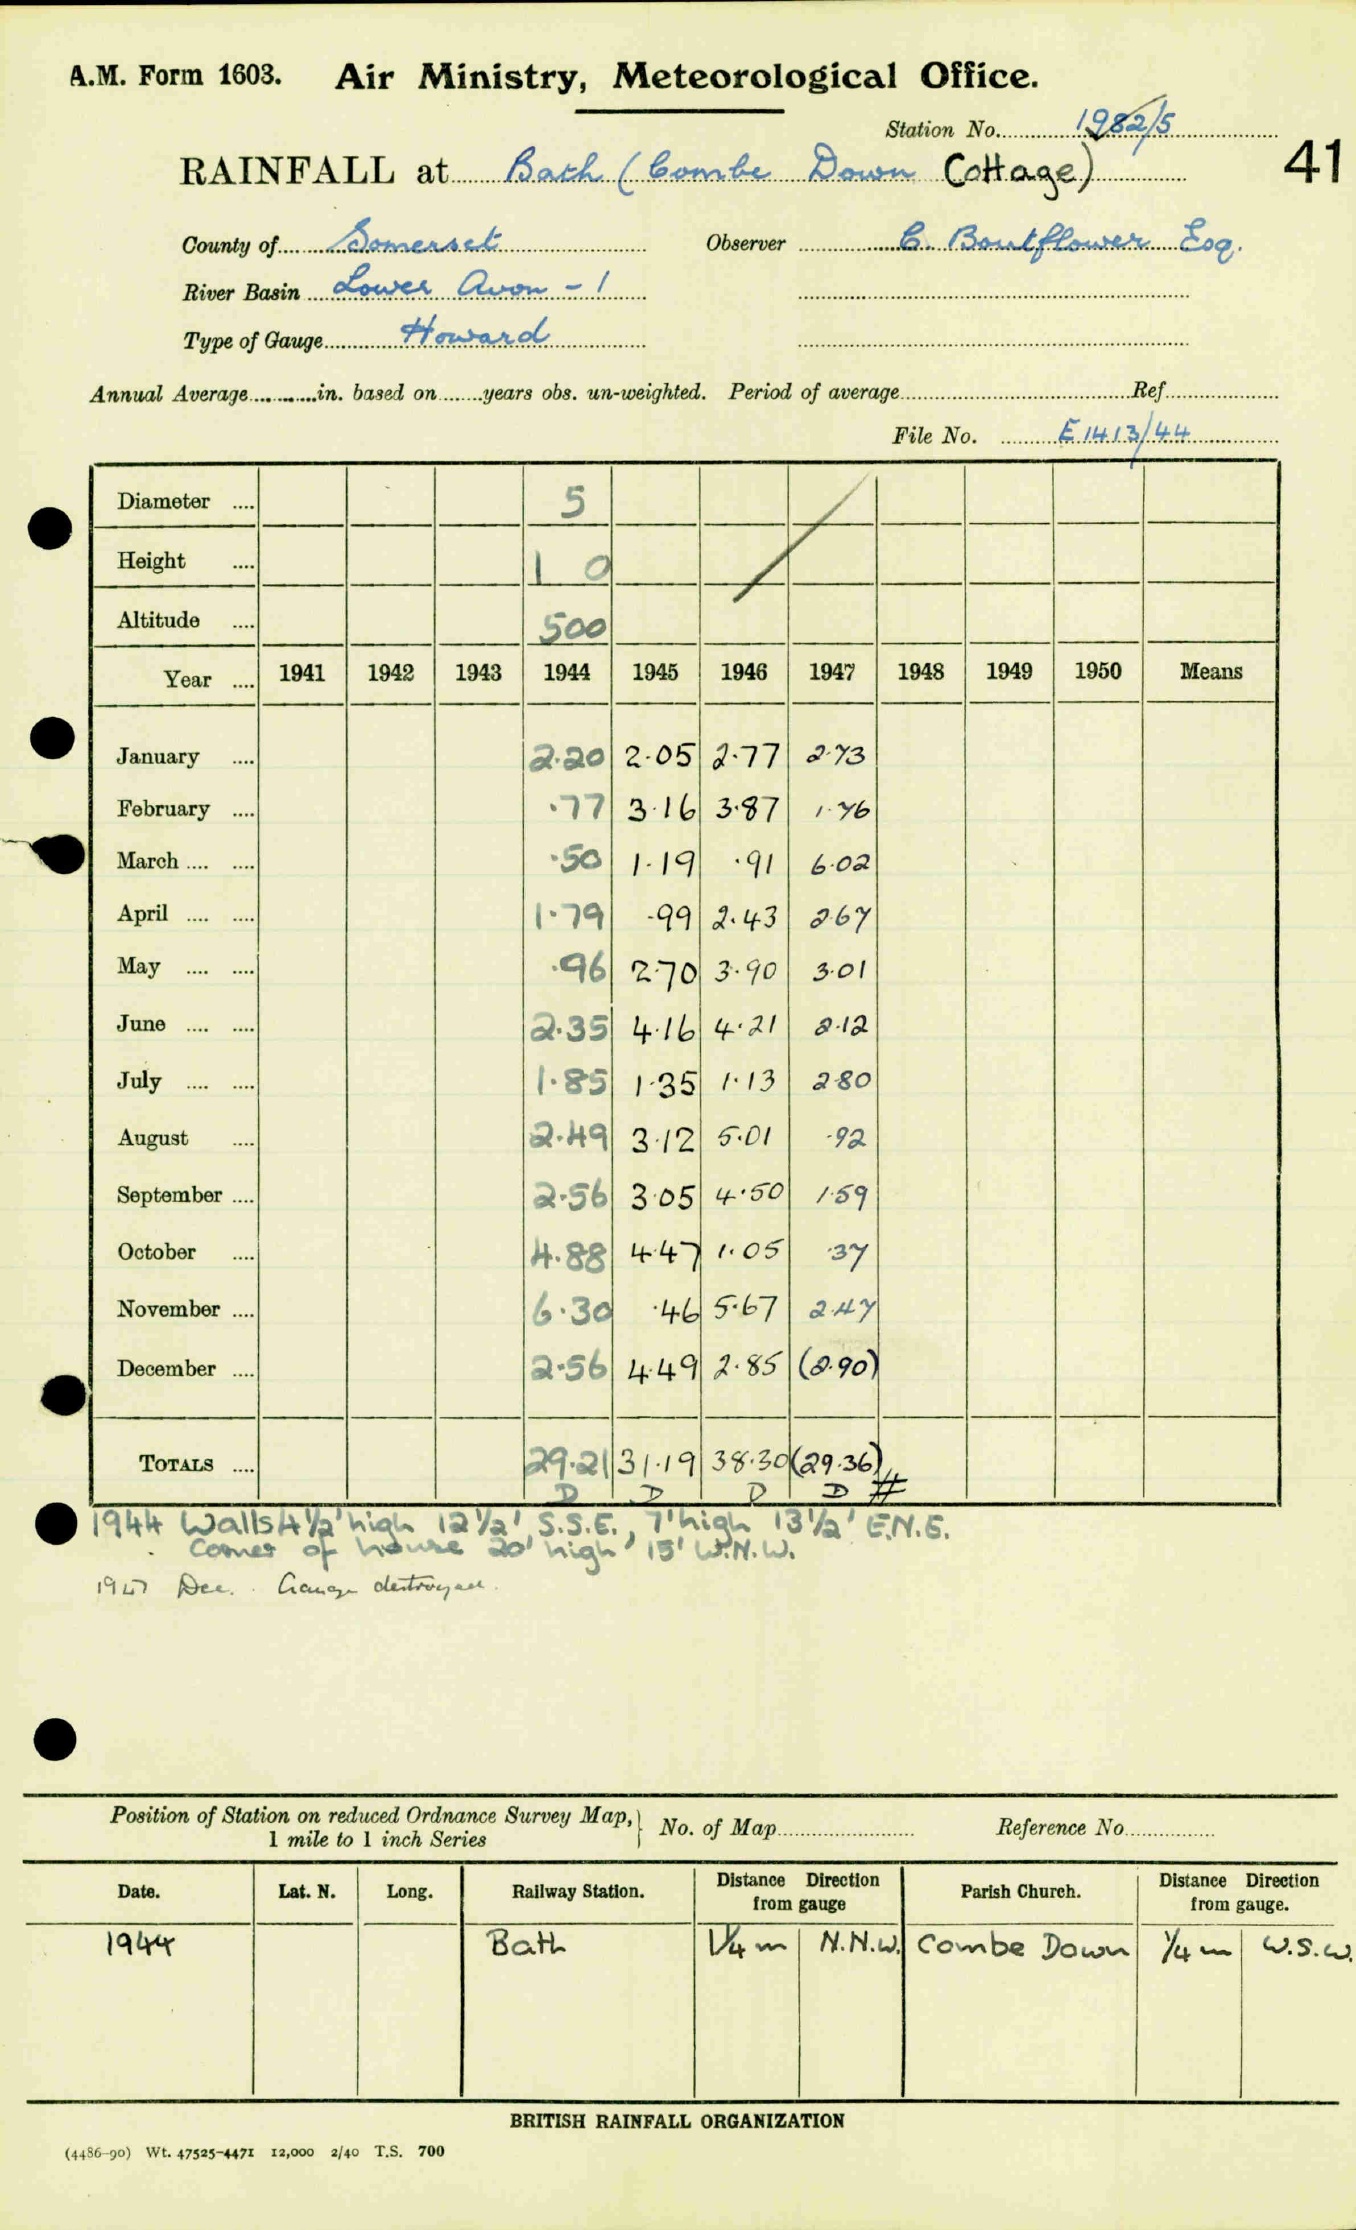 A.M. Form 1603. Air Ministry, Meteorological Office.
Station No. 1982/5
RAINFALL at Bath (Combe Down Cottage) 41
County of Somerset Observer C. Boutflower Esq.
River Basin Lower Avon - 1
Type of Gauge Howard
Annual Average in. based on years obs. un-weighted. Period of average Ref
File No. E1413/44
Diameter 5
Height 1 0
Altitude 500
Year 1941 1942 1943 1944 1945 1946 1947 1948 1949 1950 Means
January 2.20 2.05 2.77 2.73
February .77 3.16 3.87 1.76
March .50 1.19 .91 6.02
April 1.79 .99 2.43 2.67
May .96 2.70 3.90 3.01
June 2.35 4.16 4.21 2.12
July 1.85 1.35 1.13 2.80
August 2.49 3.12 5.01 .92
September 2.56 3.05 4.50 1.59
October 4.88 4.47 1.05 .37
November 6.30 .46 5.67 2.47
December 2.56 4.49 2.85 (2.90)
TOTALS 29.21 31.19 38.30 (29.36)
D D D D #
1944 Walls 4½' high 12½' S.S.E., 7' high 13½' E.N.E.
Corner of house 20' high 15' W.N.W.
1947 Dec. Gauge destroyed.
Position of Station on reduced Ordnance Survey Map, 1 mile to 1 inch Series No. of Map Reference No
Date. Lat. N. Long. Railway Station. Distance Direction from gauge Parish Church. Distance Direction from gauge.
1944 Bath 1¼ m N.N.W. Combe Down ¼ m W.S.W.
BRITISH RAINFALL ORGANIZATION
(4486-90) Wt. 47525-4471 12,000 2/40 T.S. 700